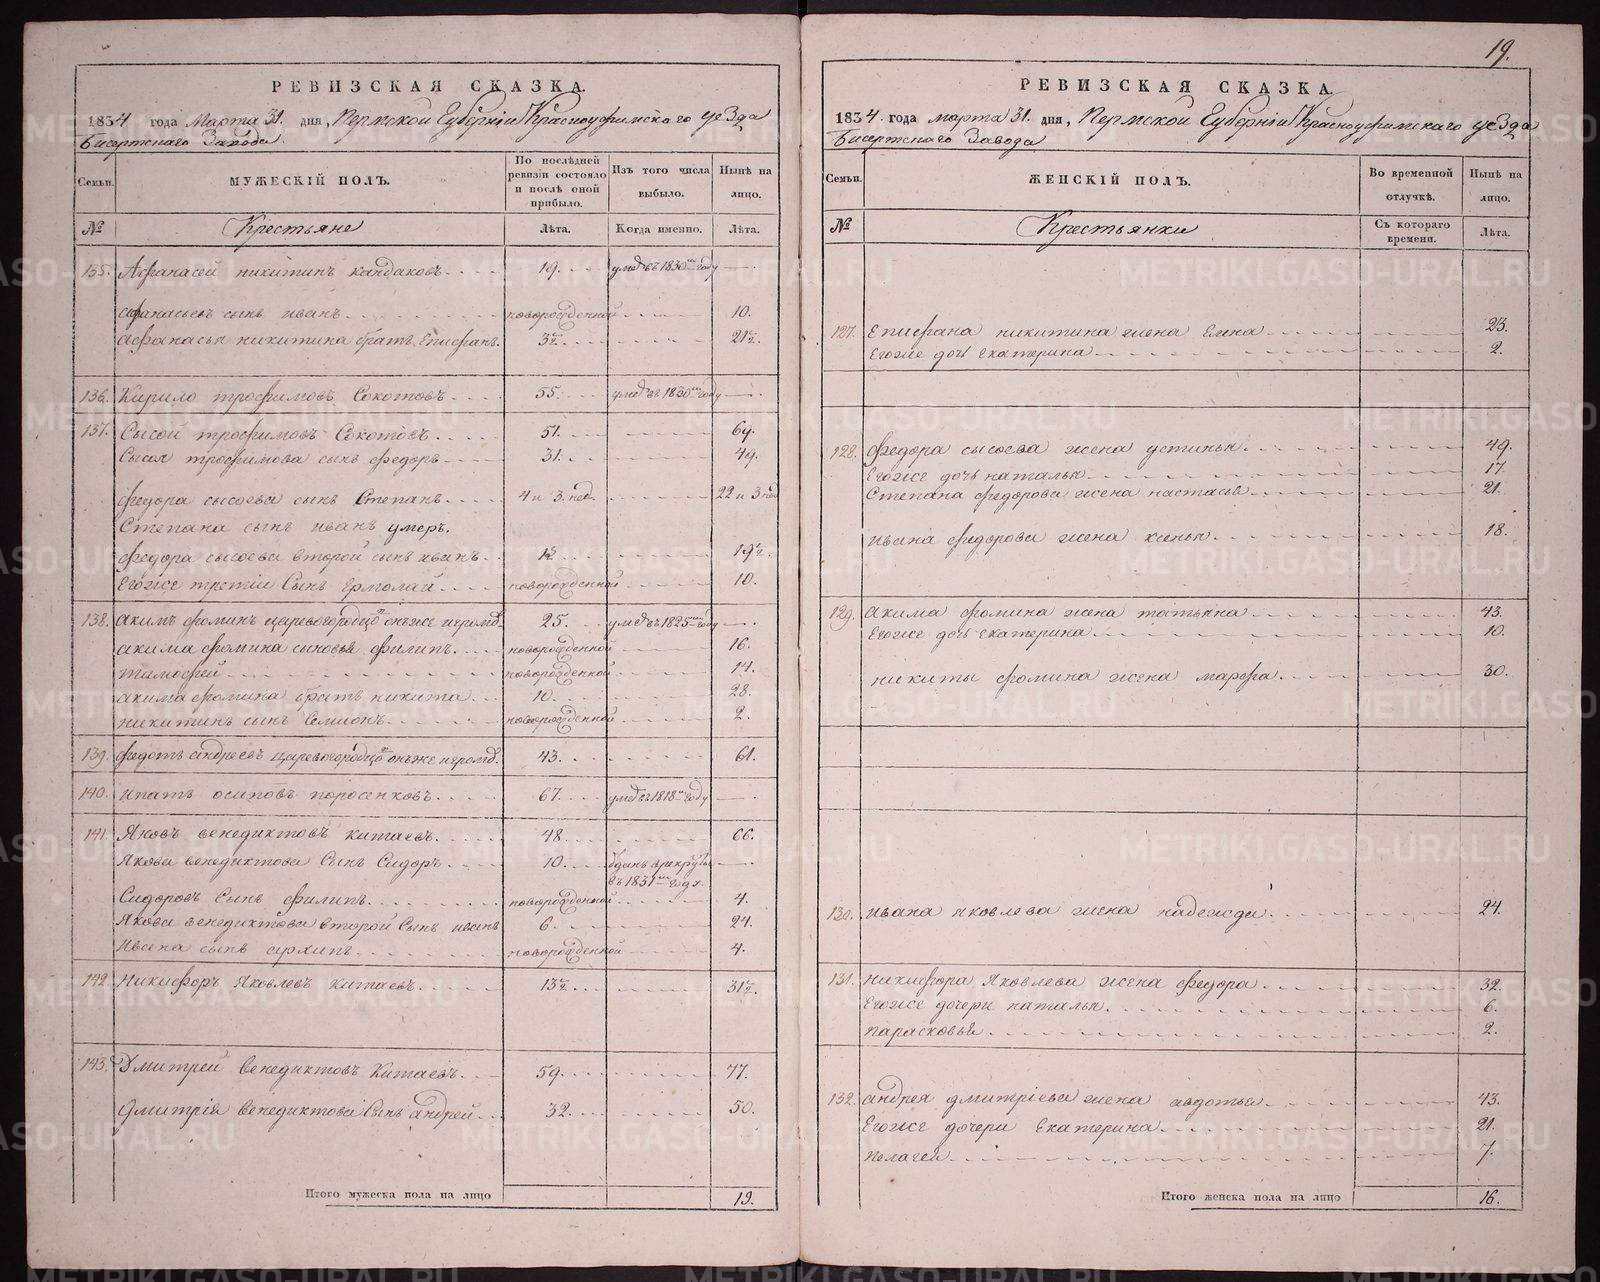 РЕВИЗСКАЯ СКАЗКА.
1834 года Марта 31. дня, Пермской Губернiи Красноуфимскаго уезда
Бисертскаго Завода
Семьи.
МУЖЕСКIЙ ПОЛЪ.
По послѣдней ревизiи состояло и послѣ оной прибыло.
Изъ того числа выбыло.
Нынѣ на лицо.
№
Крестьяне
Лѣта.
Когда именно.
Лѣта.
135. Афанасей никитинъ кандаковъ 19. умеръ въ 1830мъ году
афанасьевъ сынъ иванъ новорожденной 10.
афанасья никитина братъ Епифанъ. 3½ 21½.
136. Кирило трофимовъ Сокотовъ 55. умеръ въ 1830мъ году
137. Сысой трофимовъ Сокотовъ 51. 69.
Сысоя трофимова сынъ федоръ 31. 49.
федора сысоева сынъ Степанъ 4 и 3 нед. 22 и 3 нед
Степана сынъ иванъ умеръ.
федора сысоева второй сынъ иванъ 19½.
Егоже третiи Сынъ ермолай новорожденной 10.
138. акимъ фоминъ царевогородцовъ онъже 25. умеръ въ 1825мъ году
акима фомина сыновья филипъ. новорожденной 16.
тимофей новорожденной 14.
акима фомина братъ никита 10. 28.
никитинъ сынъ Семионъ новорожденной 2.
139. федотъ андреевъ царевогородцовъ онъже 43. 61.
140. ипатъ осиповъ поросенковъ. 67. умеръ въ 1818мъ году
141. Яковъ венедиктовъ китаевъ. 48. 66.
Якова венедиктова Сынъ Сидоръ 10. зданъ врекруты
въ 1831мъ году.
Сидоровъ Сынъ филипъ. новорожденной 4.
Якова венедиктова второй Сынъ иванъ 6. 24.
Ивана сынъ архипъ новорожденной 4.
142. Никифоръ Яковлевъ китаевъ. 13½ 31½.
143. Дмитрей венедиктовъ Китаевъ. 59. 77.
Дмитрiя венедиктова Сынъ андрей 32. 50.
Итого мужеска пола на лицо 19.
19.
РЕВИЗСКАЯ СКАЗКА.
1834. года марта 31. дня, Пермской Губернiи Красноуфимскаго уезда
Бисертскаго Завода
Семьи.
ЖЕНСКIЙ ПОЛЪ.
Во временной отлучкѣ.
Нынѣ на лицо.
№
Крестьянки
Съ котораго времени.
Лѣта.
127. Епифана никитина жена Елена 23.
Егоже дочь екатерина 2.
128. федора сысоева жена устинья. 49.
Егоже дочь наталья 17.
Степана федорова жена настасья 21.
ивана федорова жена ксенья 18.
129. акима фомина жена татьяна 43.
Егоже дочь екатерина 10.
никиты фомина жена марфа. 30.
130. ивана яковлева жена надежда. 24.
131. никифора Яковлева жена федора. 32.
Егоже дочери наталья. 6.
парасковья. 2.
132. андрея дмитрiева жена авдотья 43.
Егоже дочери Екатерина. 21.
пелагея 7.
Итого женска пола на лицо 16.